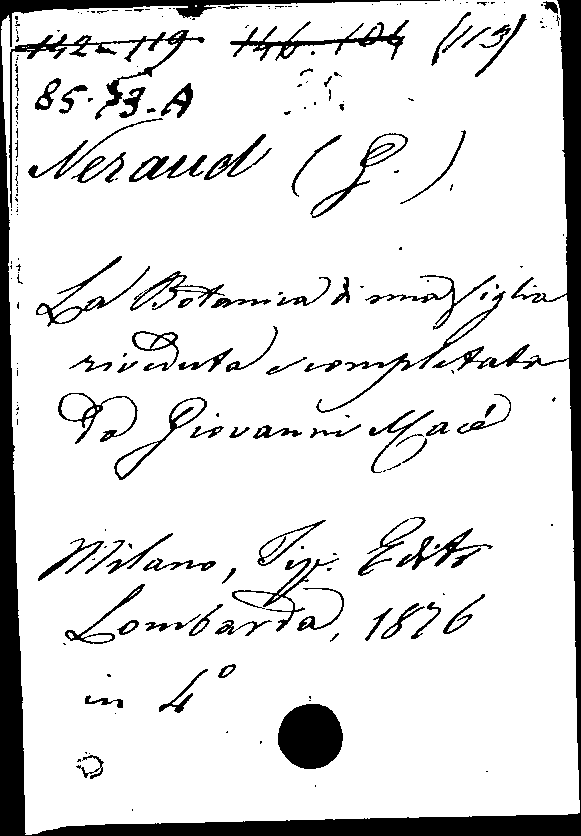 142-119 146.104 (113)
85.73.A
Neraud (G.).
La Botanica di mia figlia
riveduta e completata
da Giovanni Macé
Milano, Tip. Edit.
Lombarda, 1876
in 4º